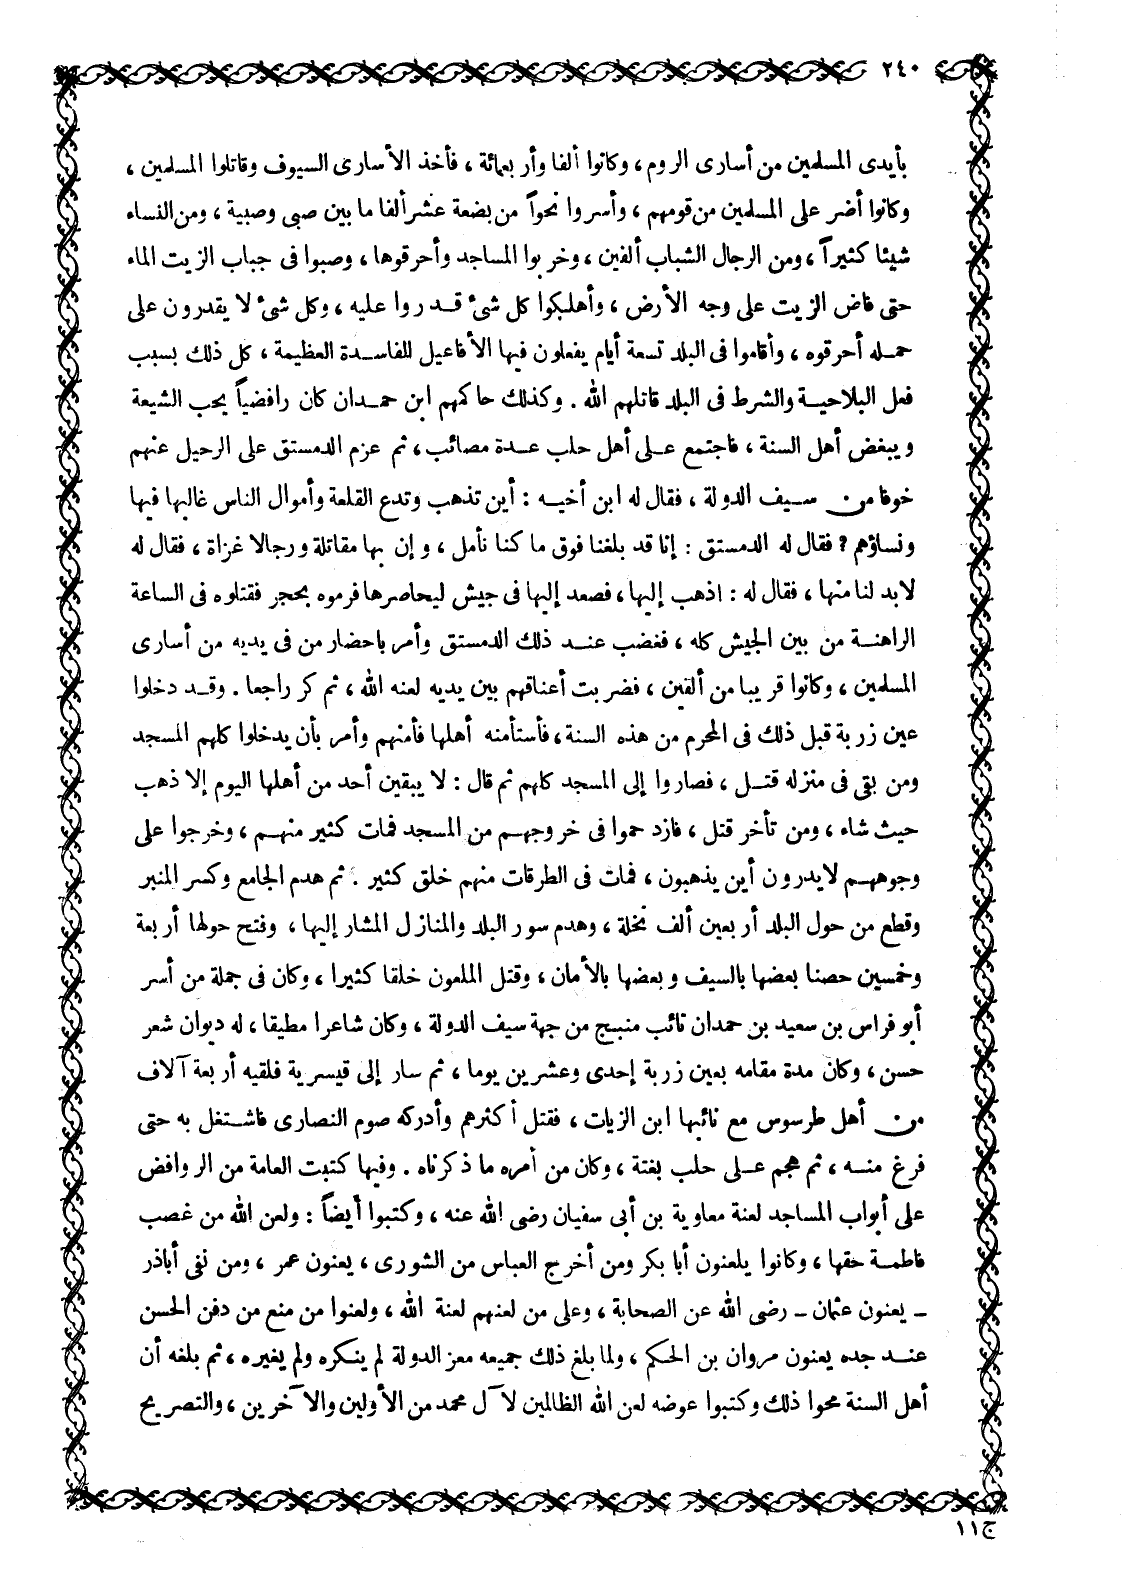 ٢٤٠
بأيدى المسلمين من أسارى الروم ، وكانوا ألفا وأربعمائة ، فأخذ الأسارى السيوف وقاتلوا المسلمين ،
وكانوا أضر على المسلمين من قومهم ، وأسروا نحواً من بضعة عشر ألفا ما بين صبى وصبية ، ومن النساء
شيئا كثيراً ، ومن الرجال الشباب ألفين ، وخربوا المساجد وأحرقوها ، وصبوا فى جباب الزيت الماء
حتى فاض الزيت على وجه الأرض ، وأهلكوا كل شىء قدروا عليه ، وكل شىء لا يقدرون على
حمله أحرقوه ، وأقاموا فى البلد تسعة أيام يفعلون فيها الأفاعيل الفاسدة العظيمة ، كل ذلك بسبب
فعل البلاحية والشرط فى البلد قاتلهم الله . وكذلك حاكمهم ابن حمدان كان رافضياً يحب الشيعة
ويبغض أهل السنة ، فاجتمع على أهل حلب عدة مصائب ، ثم عزم الدمستق على الرحيل عنهم
خوفا من سيف الدولة ، فقال له ابن أخيه : أين تذهب وتدع القلعة وأموال الناس غالبها فيها
ونساؤهم ؟ فقال له الدمستق : إنا قد بلغنا فوق ما كنا نأمل ، وإن بها مقاتلة ورجالا غزاة ، فقال له
لابد لنا منها ، فقال له : اذهب إليها ، فصعد إليها فى جيش ليحاصرها فرموه بحجر فقتلوه فى الساعة
الراهنة من بين الجيش كله ، فغضب عند ذلك الدمستق وأمر باحضار من فى يديه من أسارى
المسلمين ، وكانوا قريبا من ألفين ، فضربت أعناقهم بين يديه لعنه الله ، ثم كر راجعا . وقد دخلوا
عين زربة قبل ذلك فى المحرم من هذه السنة ، فأستأمنه أهلها فأمنهم وأمر بأن يدخلوا كلهم المسجد
ومن بقى فى منزله قتل ، فصاروا إلى المسجد كلهم ثم قال : لا يبقين أحد من أهلها اليوم إلا ذهب
حيث شاء ، ومن تأخر قتل ، فازدحموا فى خروجهم من المسجد فمات كثير منهم ، وخرجوا على
وجوههم لا يدرون أين يذهبون ، فمات فى الطرقات منهم خلق كثير . ثم هدم الجامع وكسر المنبر
وقطع من حول البلد أربعين ألف نخلة ، وهدم سور البلد والمنازل المشار إليها ، وفتح حولها أربعة
وخمسين حصنا بعضها بالسيف وبعضها بالأمان ، وقتل الملعون خلقا كثيرا ، وكان فى جملة من أسر
أبو فراس بن سعيد بن حمدان نائب منبج من جهة سيف الدولة ، وكان شاعرا مطيقا ، له ديوان شعر
حسن ، وكان مدة مقامه بعين زربة إحدى وعشرين يوما ، ثم سار إلى قيسرية فلقيه أربعة آلاف
من أهل طرسوس مع نائبها ابن الزيات ، فقتل أكثرهم وأدركه صوم النصارى فاشتغل به حتى
فرغ منه ، ثم هجم على حلب بغتة ، وكان من أمره ما ذكرناه . وفيها كتبت العامة من الروافض
على أبواب المساجد لعنة معاوية بن أبى سفيان رضى الله عنه ، وكتبوا أيضاً : ولعن الله من غصب
فاطمة حقها ، وكانوا يلعنون أبا بكر ومن أخرج العباس من الشورى ، يعنون عمر ، ومن نفى أباذر
ــ يعنون عثمان ــ رضى الله عن الصحابة ، وعلى من لعنهم لعنة الله ، ولعنوا من منع من دفن الحسن
عند جده يعنون مروان بن الحكم ، ولما بلغ ذلك جميعه معز الدولة لم ينكره ولم يغيره ، ثم بلغه أن
أهل السنة محوا ذلك وكتبوا عوضه لعن الله الظالمين لآل محمد من الأولين والآخرين ، والتصريح
ج ١١